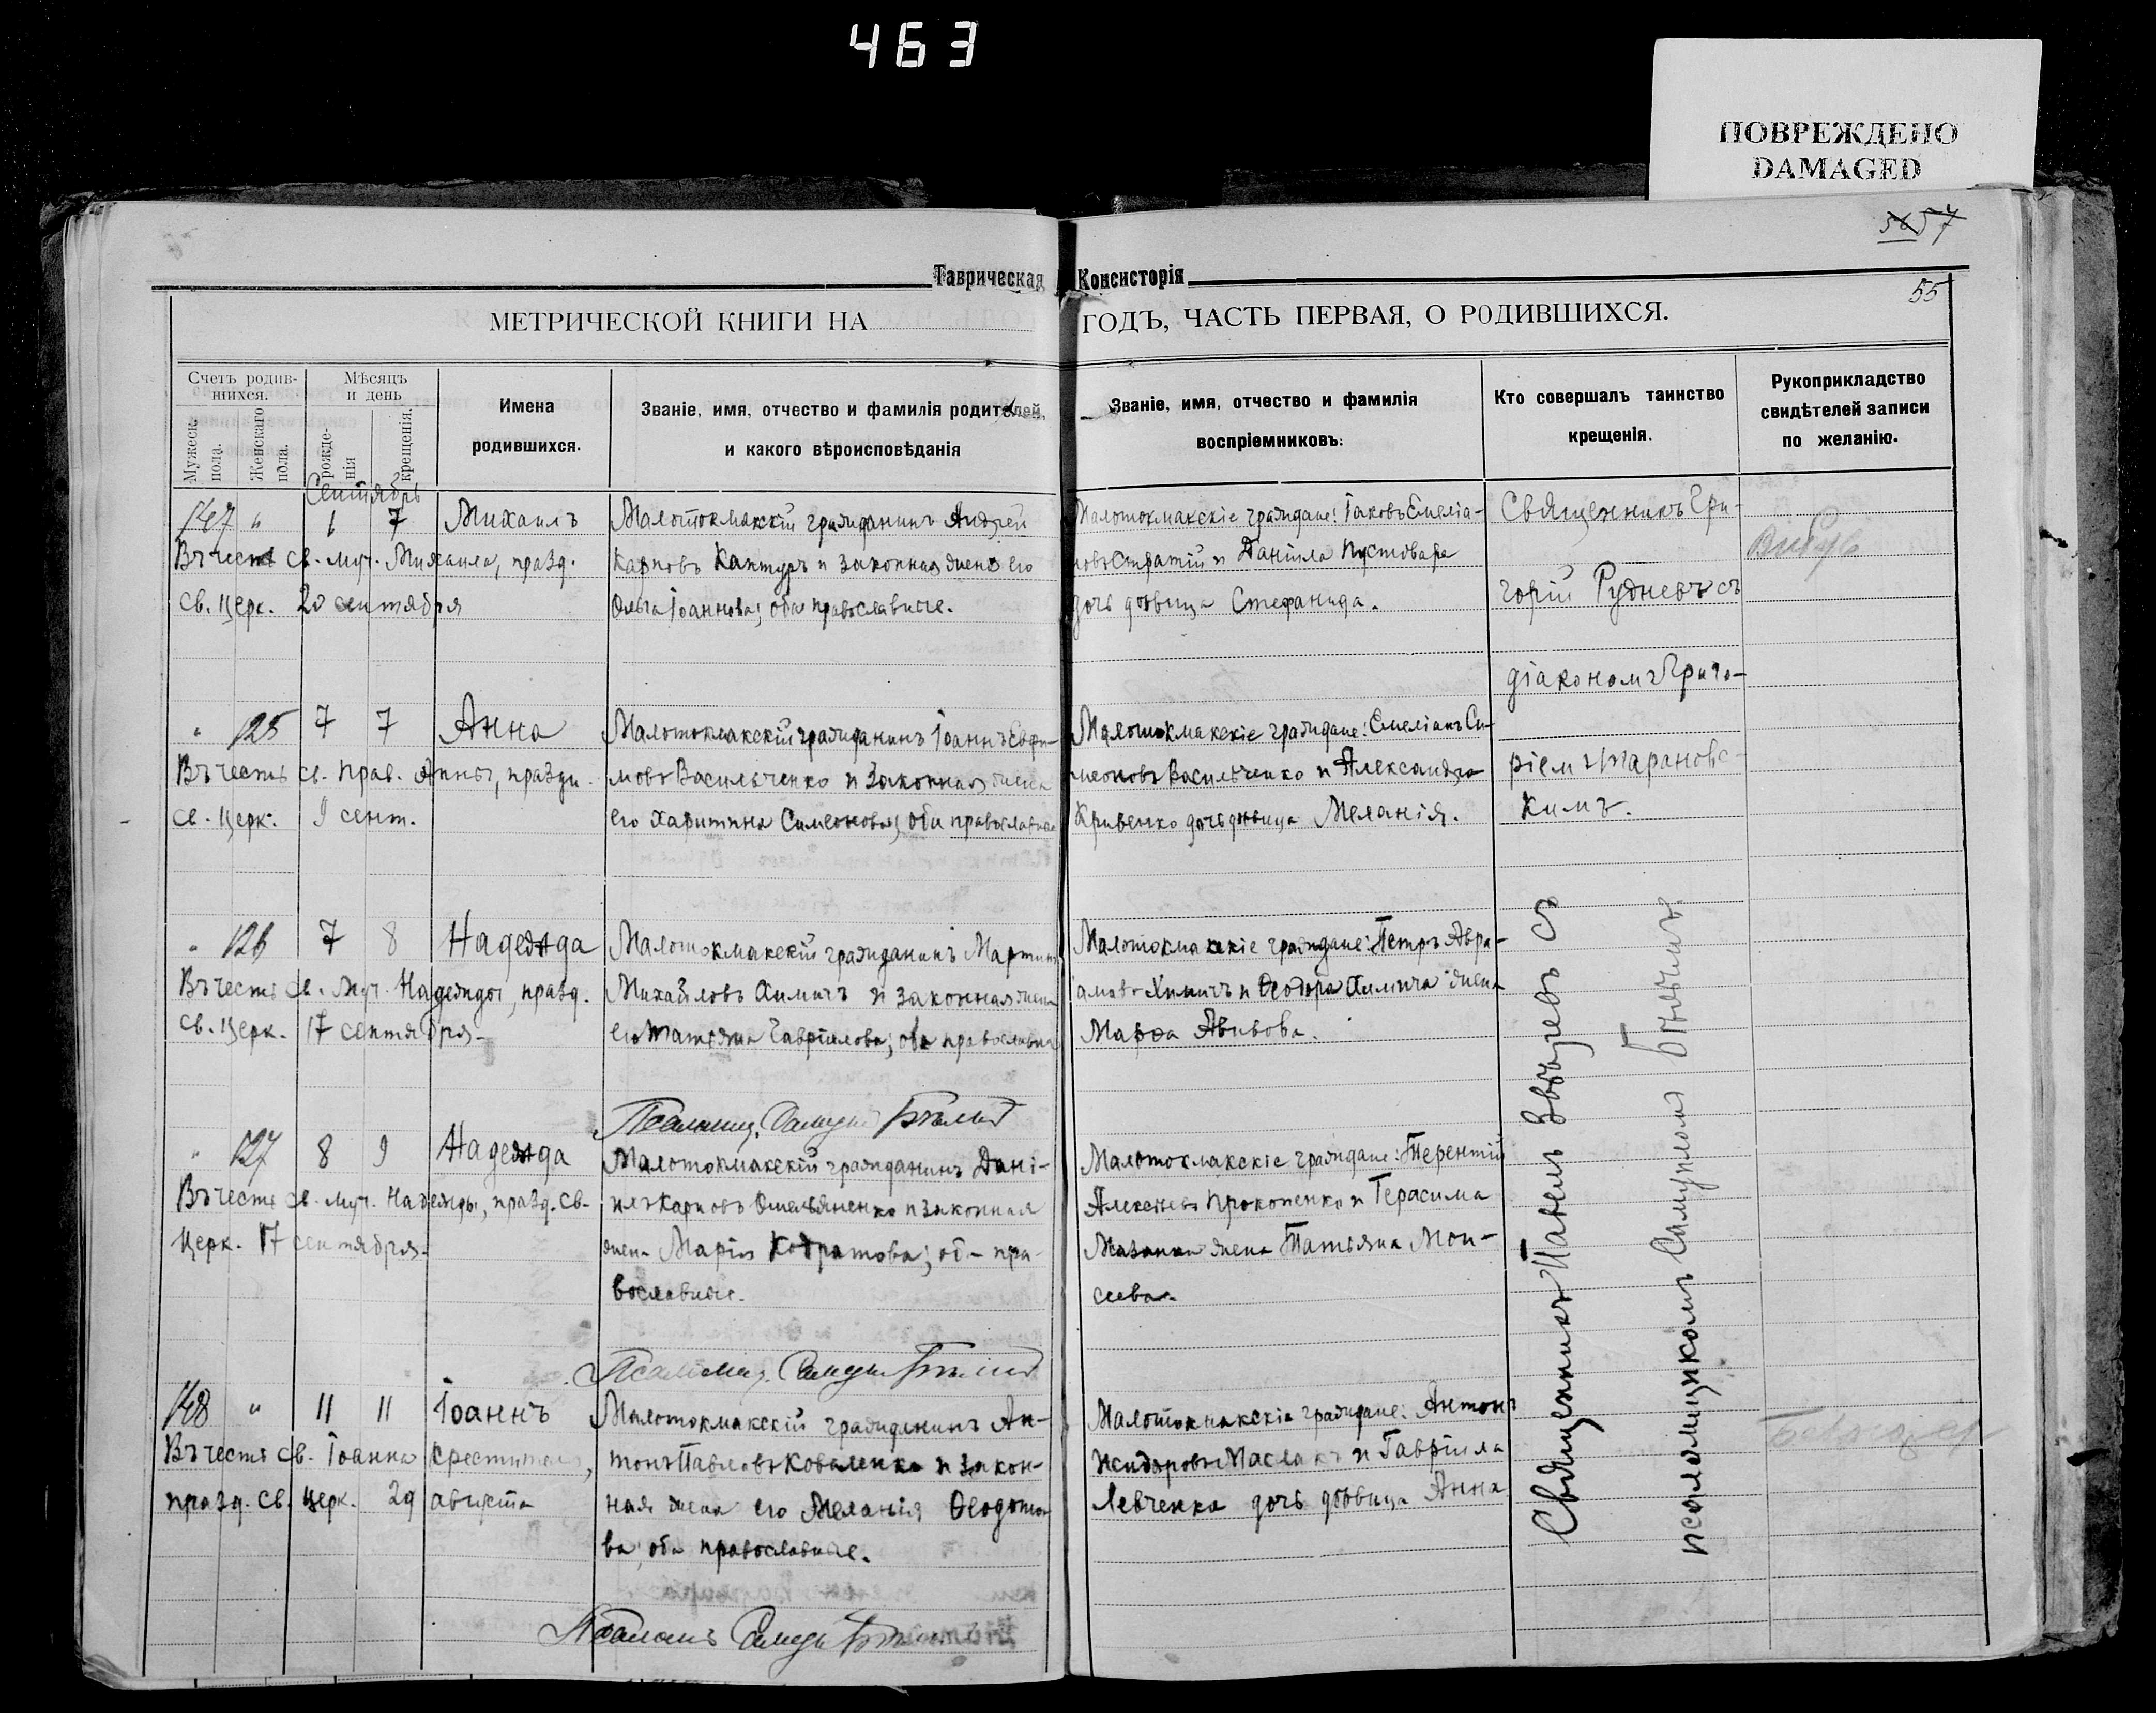 463
ПОВРЕЖДЕНО
DAMAGED
56 57
Таврическая Консисторія
55
МЕТРИЧЕСКОЙ КНИГИ НА ГОДЪ, ЧАСТЬ ПЕРВАЯ, О РОДИВШИХСЯ.
Счетъ родив-
шихся.
Мужеск. пола.
Женскаго пола.
Мѣсяцъ
и день
рожде-
нія
крещенія.
Имена
родившихся.
Званіе, имя, отчество и фамилія родителей,
и какого вѣроисповѣданія
Званіе, имя, отчество и фамилія
воспріемниковъ:
Кто совершалъ таинство
крещенія.
Рукоприкладство
свидѣтелей записи
по желанію.
Сентябрь
147 " 1 7 Михаилъ
Въ честь св. муч. Михаила, празд.
св. Церк. 20 сентября
Малотокмакскій гражданинъ Андрей
Карповъ Каптуръ и законная жена его
Ольга Іоаннова; оба православные.
Малотокмакскіе граждане: Іаковъ Емеліа-
новъ Стратій и Даніила Пустовара
дочь дѣвица Стефанида.
Священникъ Гри-
горій Рудневъ съ
діакономъ Григо-
ріемъ Тарановс-
кимъ.
" 125 7 7 Анна
Въ честь св. Прав. Анны, праздн.
св. Церк. 9 сент.
Малотокмакскій гражданинъ Іоаннъ Евфи-
мовъ Васильченко и законная жена
его Харитина Симеонова; оба православные
Малотокмакскіе граждане: Емеліанъ Си-
меоновъ Васильченко и Александра
Кривенко дочь дѣвица Меланія.
" 126 7 8 Надежда
Въ честь св. муч. Надежды, празд.
св. Церк. 17 сентября.
Малотокмакскій гражданинъ Мартинъ
Михайловъ Химичъ и законная жена
его Татіана Гавріилова; оба православные
Малотокмакскіе граждане: Петръ Авра-
амовъ Химичъ и Ѳеодора Химича жена
Марѳа Авивова.
Псаломщ. Самуилъ Бѣлый
" 127 8 9 Надежда
Въ честь св. муч. Надежды, празд. св.
Церк. 17 сентября.
Малотокмакскій гражданинъ Дані-
илъ Карповъ Омельяненко и законная
жена Марія Кодратова; оба пра-
вославные.
Малотокмакскіе граждане: Терентій
Алексѣевъ Прокопенко и Герасима
Мазанки жена Татьяна Мои-
сеева.
Псаломщ. Самуилъ Бѣлый
148 " 11 11 Іоаннъ
Въ честь св. Іоанна Крестителя,
празд. св. Церк. 29 августа
Малотокмакскій гражданинъ Ан-
тонъ Павловъ Коваленко и закон-
ная жена его Меланія Ѳеодото-
ва; оба православные.
Малотокмакскіе граждане: Антонъ
Исидоровъ Маслакъ и Гавріила
Левченка дочь дѣвица Анна
Псаломщ. Самуилъ Бѣлый
Священникъ Павелъ Звѣревъ съ
псаломщикомъ Самуиломъ Бѣлымъ.